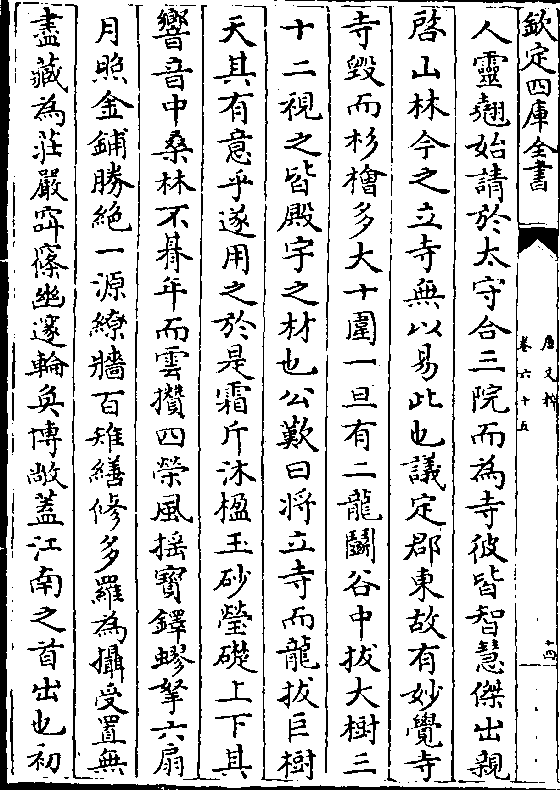 欽定四庫全書
唐文粹
卷六十五
十四
人靈翹始請於太守合三院而為寺彼皆智慧傑出親
啓山林今之立寺無以易此也議定郡東故有妙覺寺
寺毀而杉檜多大十圍一旦有二龍鬬谷中拔大樹三
十二視之皆殿宇之材也公歎曰将立寺而龍拔巨樹
天其有意乎遂用之於是霜斤沐楹玉砂瑩礎上下其
響音中桑林不朞年而雲攢四榮風揺寳鐸蟉拏六扇
月照金鋪勝絶一源繚牆百雉繕修多羅為攝受置無
盡藏為莊嚴窔窱幽邃輪奐博敞蓋江南之首出也初